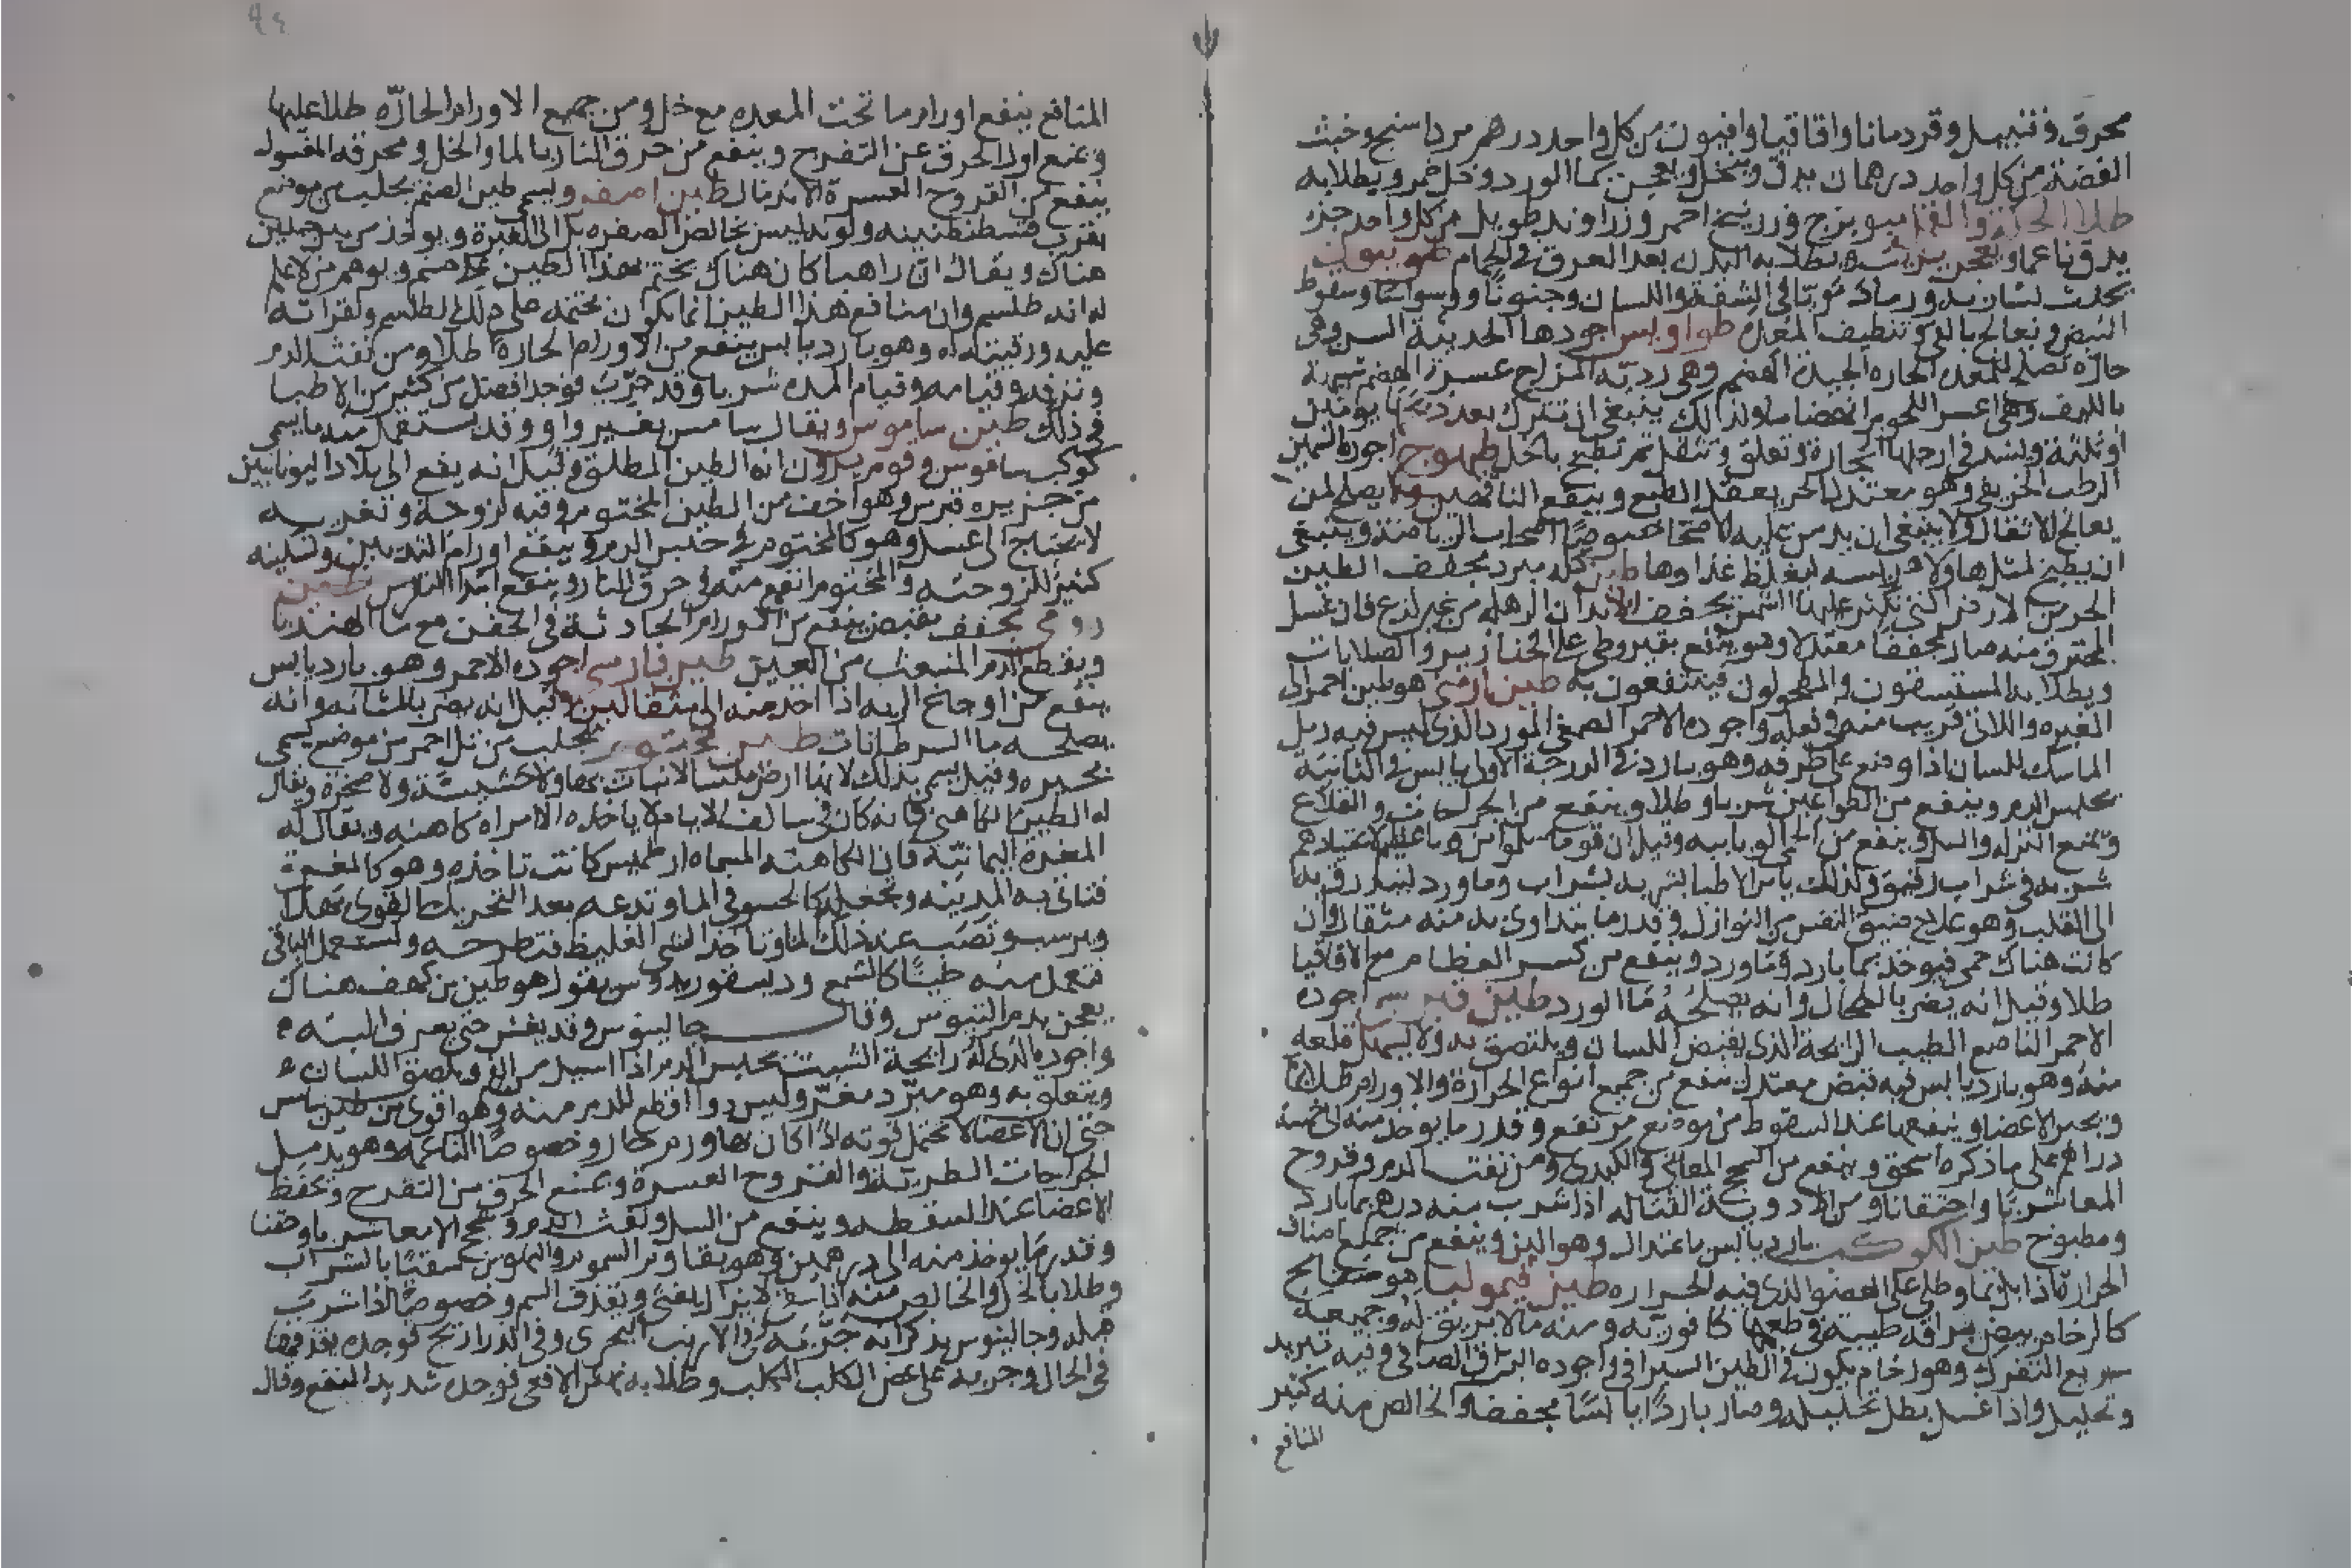 محرق وقنبيل وقردمانا واقاقيا وافيون من كل واحد درهم مرداسنج وخبث
الفضة من كل واحد درهمان يدق وينخل ويعجن بماالورد وخل خمر ويطلا به
طلاا الحكة والقمل ميويزج وزرنيخ احمر وزراوند طويل من كل واحد جز
يدق ناعما ويعجن بزيت ويطلا به البدن بعد العرق في الحمام
يحدث لشاربه ورما في الشفة واللسان وجنونا ووسواسا وسقوط
النبض ويعالج بالقي وتنظيف المعدة طواويس اجودها الحديثة السن وهي
حارة تصلح للمعدة الحاره الجيدة الهضم وهي ردية المزاج عسرة الهضم
وهي اعسر اللحوم انهضاما ولذلك ينبغي ان تترك بعد ذبحها يومين
او ثلثة ويشد في ارجلها الحجارة وتعلق وتثقل ثم تطبخ بالخل طيهوج اجوده السمين
الرطب الخريفي وهو معتدل الحر يعقل الطبع وينفع الناقهين ولا يصلح لمن
يعالج الاثقال ولا ينبغي ان يدمن عليه الاصحا خصوصا اصحاب الرياضة وينبغي
ان يطبخ لمثلها ولا هريسه ليغلظ غذاوها طين كله مبرد مجفف الطين
الحر من الارض التي تكثر عليها الشمس يجفف الابدان الرهله من غير لذع فان غسل
المحترق منه صار مجففا معتدلا وهو ينفع بقيروطي على الخنازير والصلابات
ويطلا به المستسقون والمطحولون فينتفعون به طين ارمني هو طين احمر الى
الغبره واللاني قريب منه في فعله واجوده الاحمر الصمغي المورد الذي ليس فيه رمل
الماسك للسان اذا وضع على طرفه وهو بارد في الدرجة الاولى يابس في الثانية
يحبس الدم وينفع من الطواعين شربا وطلا وينفع من الجراحات والقلاع
ويمنع النزله والسل وينفع من الحمى الوبايية وقيل ان قوما سلموا من وبا عظيم لاعتيادهم
شربه في شراب رقيق ولذلك يامر الاطبا بشربه بشراب وماورد لينفذ رقته
الى القلب وهو علاج ضيق النفس من النوازل وقدر ما يتداوى به منه مثقال وان
كانت هناك حمى فيوخذ بما بارد وماورد وينفع من كسر العظام مع الاقاقيا
طلا وقيل انه يضر بالطحال وانه يصلحه ماالورد طين قبرسي اجوده
الاحمر الناصع الطيب الرايحة الذي يقبض اللسان ويلتصق به ولا يسهل قلعه
منه وهو بارد يابس فيه قبض معتدل ينفع من جميع انواع الحرارة والاورام طلا
ويجبر الاعضا وينفعها عند السقوط من موضع مرتفع وقدر ما يوخذ منه الى خمسة
دراهم على ما ذكره اسحق وينفع من السحج المعايي والكبدي ومن نفث الدم وقروح
المعا شربا واحتقانا ومن الادوية القتاله اذا شرب منه درهم بما بارد
ومطبوخ طين الكوكب بارد يابس باعتدال وهو الين وينفع من جميع اصناف
الحرارة اذا بل بما وطلي على العضو الذي فيه الحراره طين قيموليا هو صفايح
كالرخام بيض براقه طيبة في طعمها كافورية ومنه ما لا بريق له وجميعه
سريع التفرك وهو رخام يكون في الطين السيرافي واجوده البراق الصافي وفيه تبريد
وتحليل واذا غسل بطل تحليله وصار باردا يابسا مجففا والخالص منه كثير
المنافع
٩٤
المنافع ينفع اورام ما تحت المعده مع خل ومن جميع الاورام الحارة طلا عليها
ويمنع اول الحرق عن التقرح وينفع من حرق النار بالما والخل ومحرقه المغسول
ينفع من القروح العسرة الاندمال طين اصفر ويسمى طين الصنم يجلب من موضع
بقرب قسطنطينيه ولونه ليس بخالص الصفره بل الى الغبرة ويوخذ من بين جبلين
هناك ويقال ان راهبا كان هناك يختم هذا الطين بخاتم صنم ويوهم من لا علم
له انه طلسم وان منافع هذا الطين انما تكون بختمه على ذلك الطلسم ولقراته
عليه ورقيته له وهو بارد يابس ينفع من الاورام الحارة طلا ومن نفث الدم
ونزفه وقيامه وقيام المده شربا وقد جرب فوجد افضل من كثير من الاطيا
في ذلك طين ساموس ويقال سامس بغير واو وقد يستعمل منه ما يسمى
كوكب ساموس وقوم يرون انه الطين المطلق وقيل انه يقع الى بلاد اليونانيين
من جزيره قبرس وهو اخف من الطين المختوم وفيه لزوجة وتغريه
لا يحتاج الى غسل وهو كالمختوم في حبس الدم وينفع اورام الثديين وتليينه
كثير للزوجته والمختوم انفع منه في حرق النار وينفع ابتدا النقرس طين
رومي مجفف بقبض ينفع من الاورام الحادثة في الجفن مع ما الهندبا
ويقطع الدم المنبعث من العين طين فارسي اجوده الاحمر وهو بارد يابس
ينفع من اوجاع الريه اذا اخذ منه الى مثقالين وقيل انه يضر بالمثانه وانه
يصلحه ما السرطانات طين مختوم يجلب من تل احمر من موضع يسمى
بحيره وقيل يسمى بذلك لانها ارض ملسا لا نبات بها ولا حشيشة ولا صخرة ويقال
له الطين الكاهني فانه كان في سالف الايام لا ياخذه الا امراه كاهنه ويقال له
المغرة اليمانية فان الكاهنه المسماه ارطميس كانت تاخذه وهو كالمغرة
فتاتي به المدينه وتجعله كالحسو في الما وتدعه بعد التحريك القوي يهدا
ويرسب وتصب عند ذلك الما وتاخذ الشي الغليظ فتطرحه وتستعمل الباقي
فتعمل منه طينا كالشمع وديسقوريدوس يقول هو طين من كهف هناك
يعجن بدم التيوس وقال جالينوس وقد يغش حتى يعرف البته
واجوده الذي له رايحة الشبث يحبس الدم اذا اسيل من الفم ويلصق اللسان
ويتعلق به وهو مبرد مغر وليس دوا اقطع للدم منه وهو اقوى من طين ساموس
حتى ان الاعضا لا تحتمل قوته اذا كان بها ورم حار وخصوصا الناعمه وهو يدمل
الجراحات الطرية والقروح العسرة ويمنع الحرق من التقرح ويحفظ
الاعضا عند السقطه وينفع من السل ونفث الدم وسحج الامعا شربا وحقنا
وقدر ما يوخذ منه الى درهمين وهو يقاوم السموم والنهوش مسقيا بالشراب
وطلا بالخل والخالص منه اذا سقي لا يزال يغثي ويقذف السم وخصوصا اذا شرب
قبله وجالينوس يذكر انه جربه في الارنب البحري وفي الذراريح فوجده يقذفها
في الحال وجربه على عض الكلب الكلب وطلا به نهش الافعى فوجده شديد النفع وقال